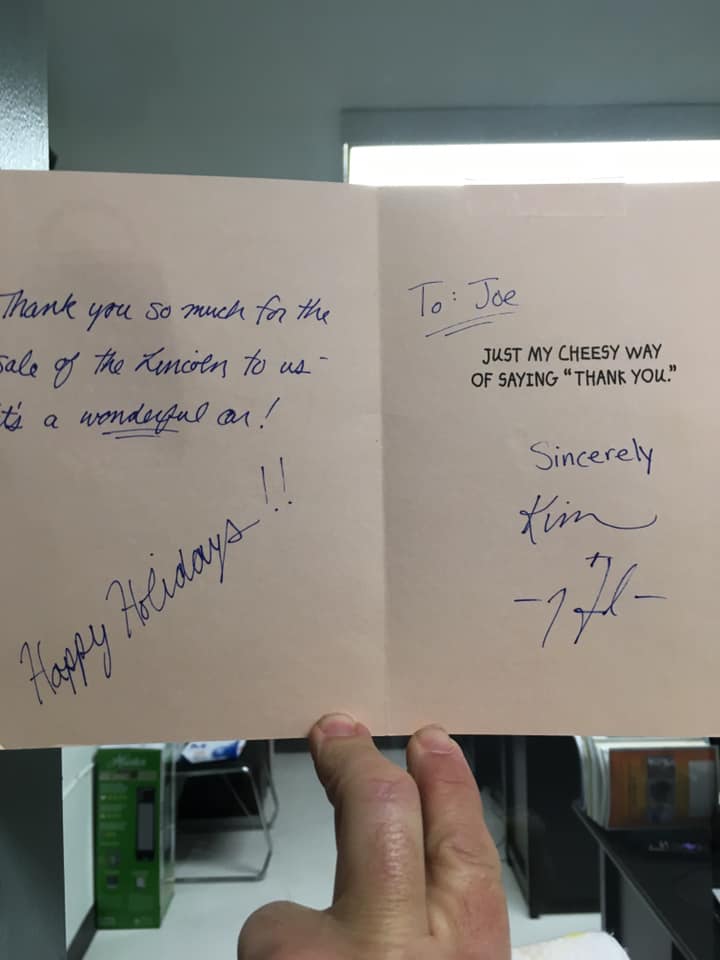 Thank you so much for the
sale of the Lincoln to us -
it's a wonderful car!
Happy Holidays!!
To: Joe
JUST MY CHEESY WAY
OF SAYING “THANK YOU.”
Sincerely
Kim